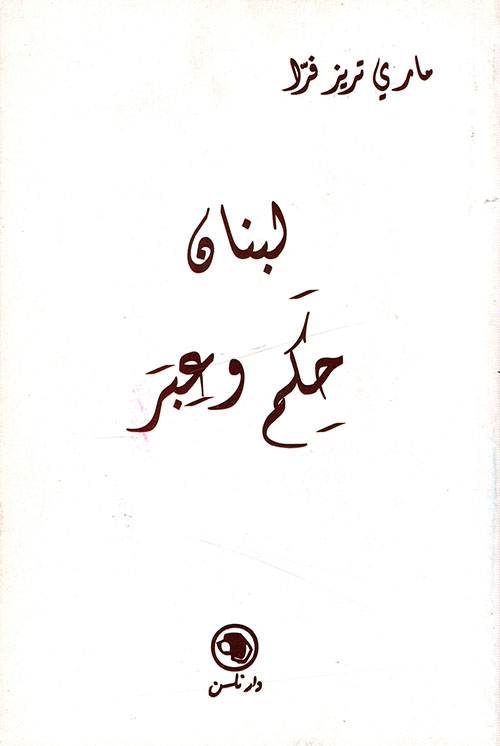 ماري تريز فرّا
لبنان
حِكَم وعِبَر
دار نلسن